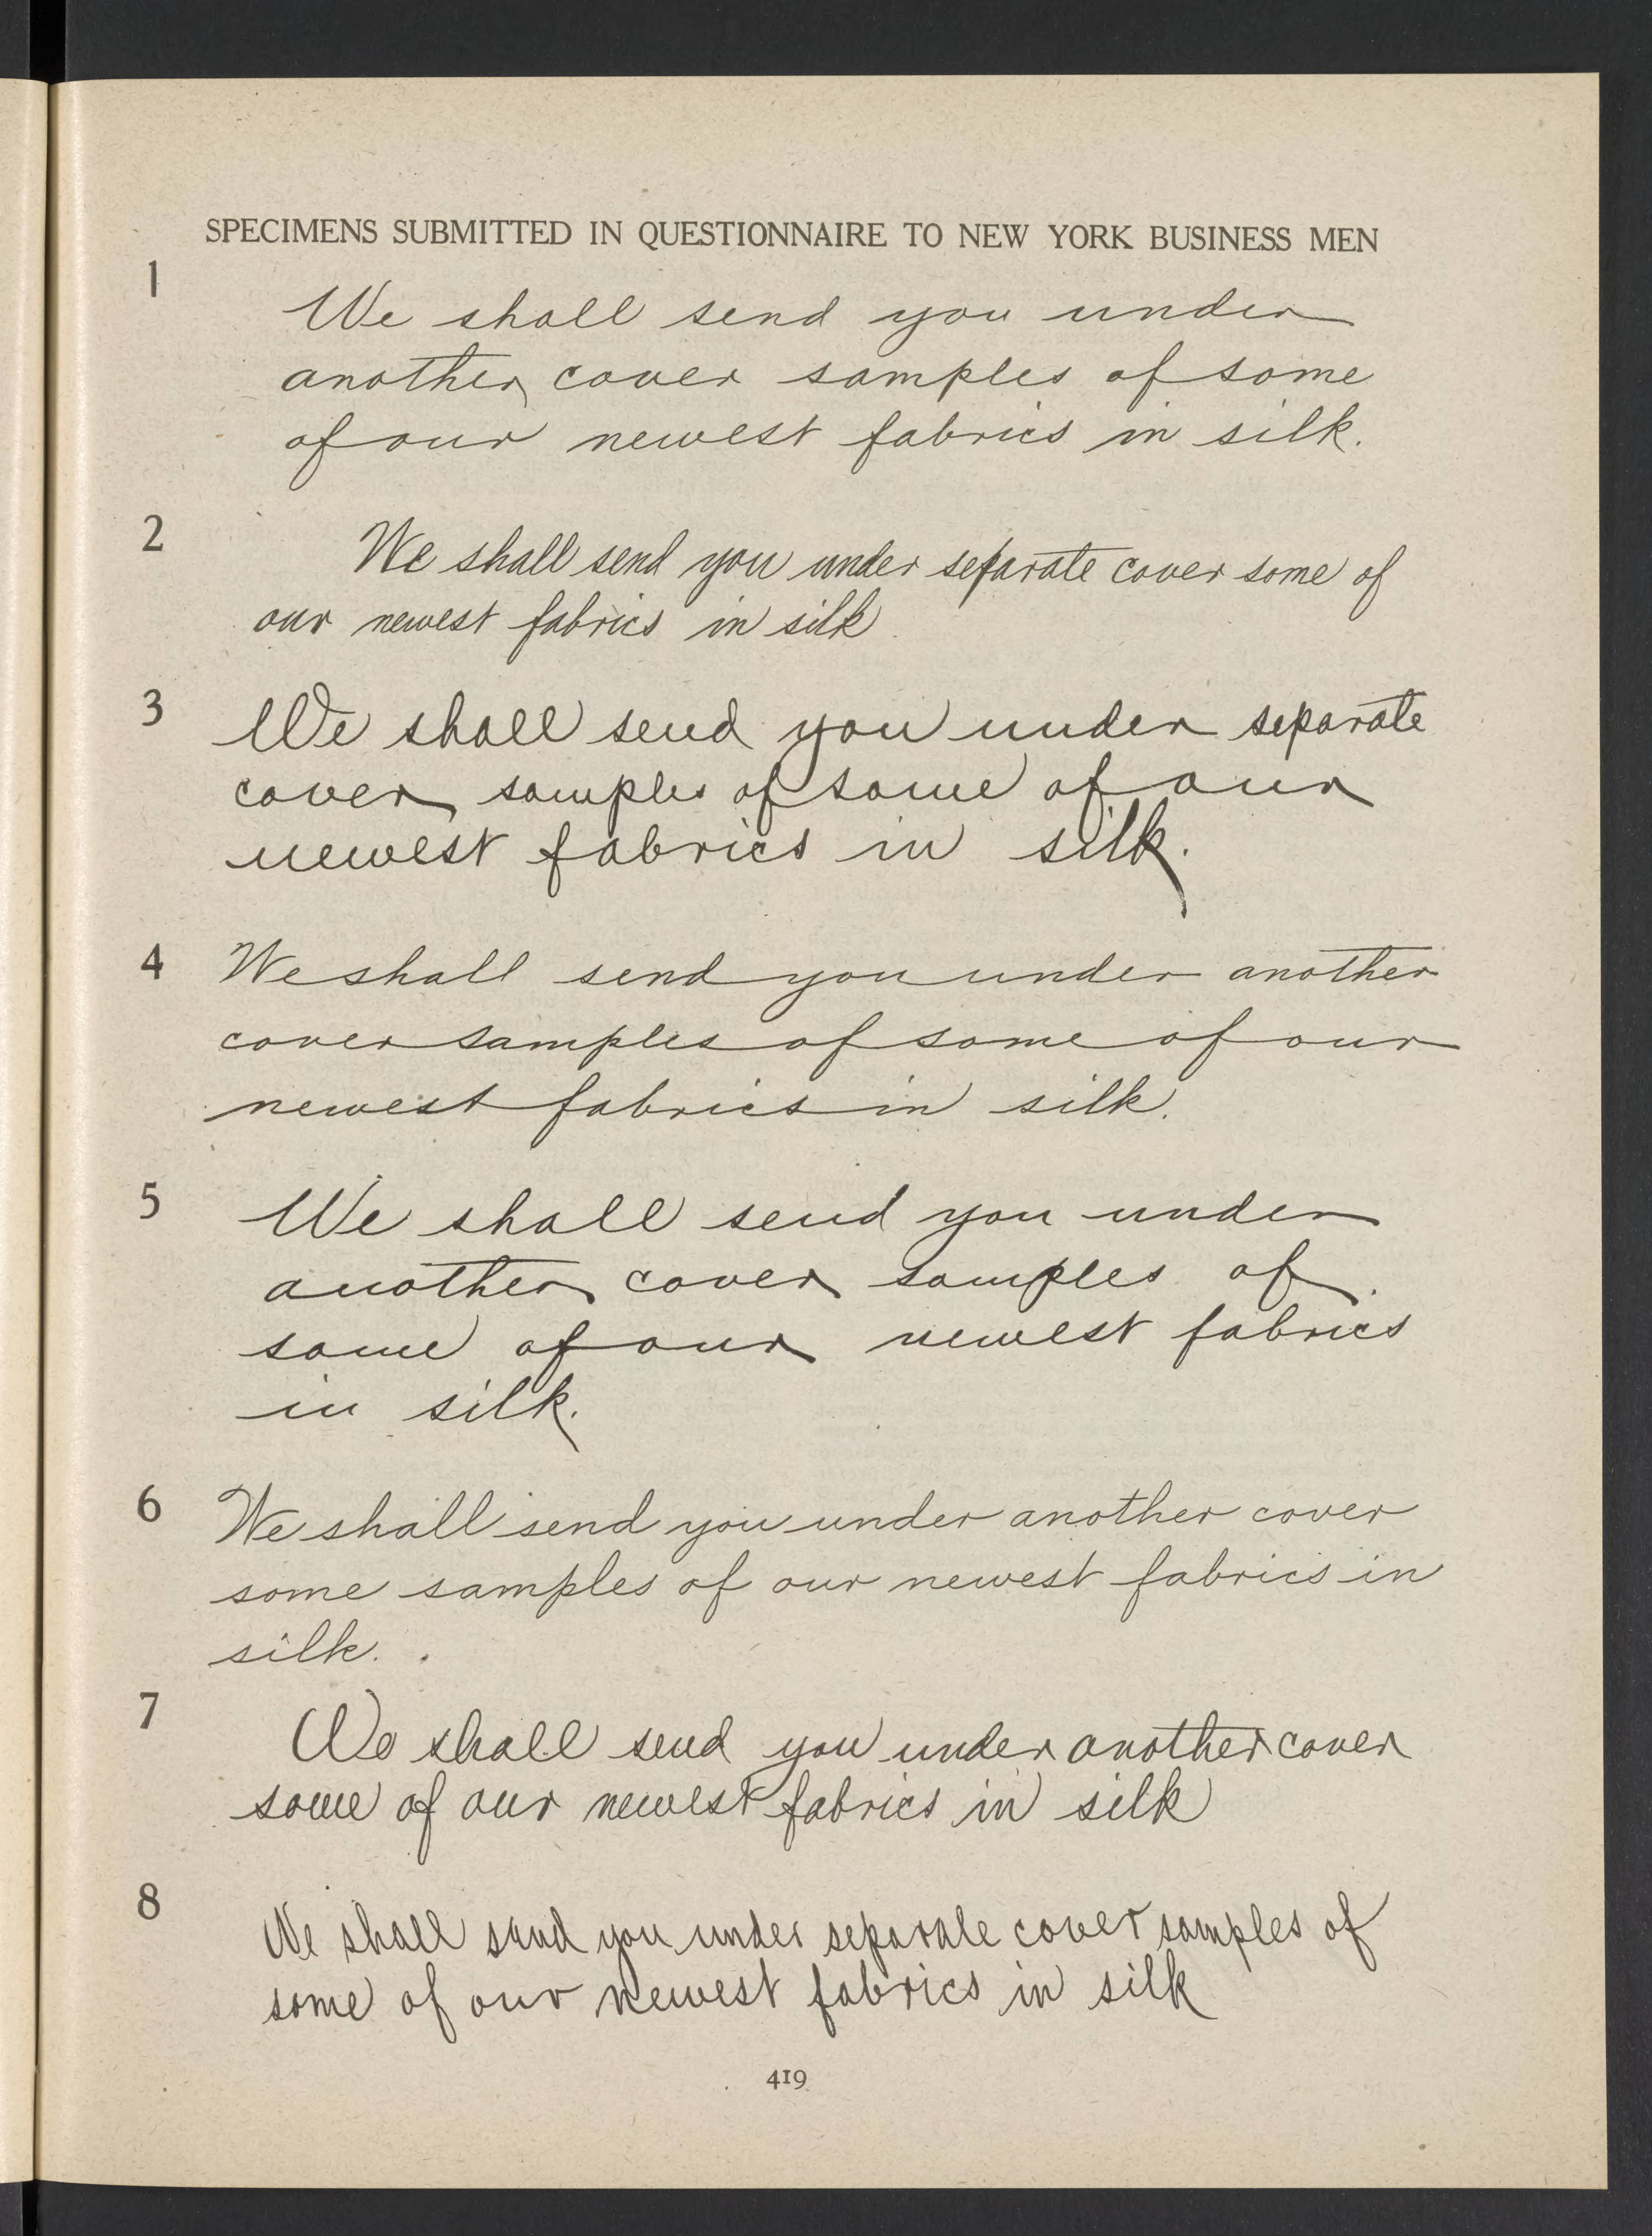 SPECIMENS SUBMITTED IN QUESTIONNAIRE TO NEW YORK BUSINESS MEN
1
We shall send you under
another cover samples of some
of our newest fabrics in silk.
2
We shall send you under separate cover some of
our newest fabrics in silk
3
We shall send you under separate
cover samples of some of our
newest fabrics in silk.
4
We shall send you under another
cover samples of some of our
newest fabrics in silk.
5
We shall send you under
another cover samples of
some of our newest fabrics
in silk.
6
We shall send you under another cover
some samples of our newest fabrics in
silk.
7
We shall send you under another cover
some of our newest fabrics in silk
8
We shall send you under separate cover samples of
some of our newest fabrics in silk
419